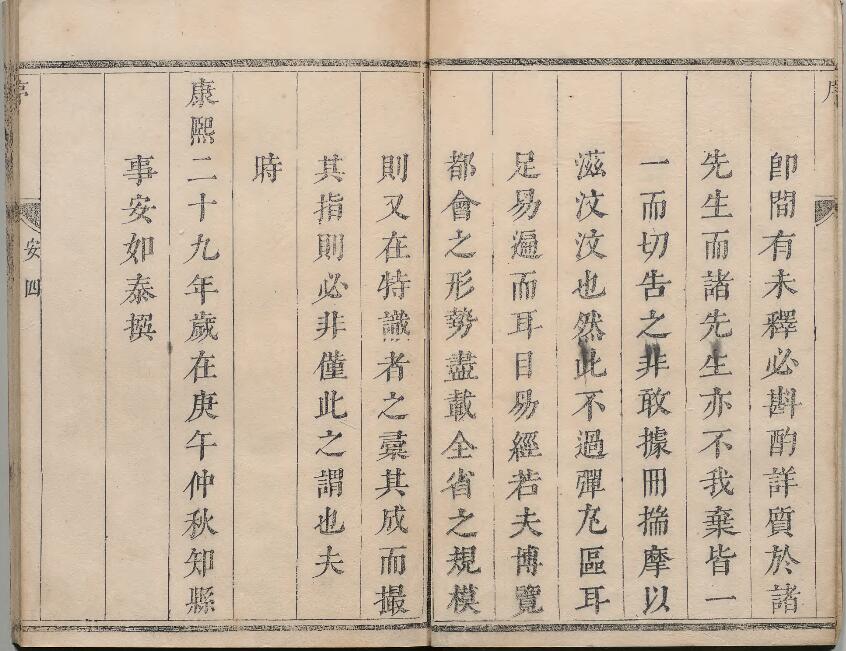 卽間有未釋必斟酌詳質於諸
先生而諸先生亦不我棄皆一
一而切告之非敢據冊揣摩以
滋汶汶也然此不過彈丸區耳
足易遍而耳目易經若夫博覽
都會之形勢盡載全省之規模
則又在特識者之彚其成而撮
其指則必非僅此之謂也夫
時
康熙二十九年歲在庚午仲秋知縣
事安如泰撰
安 四